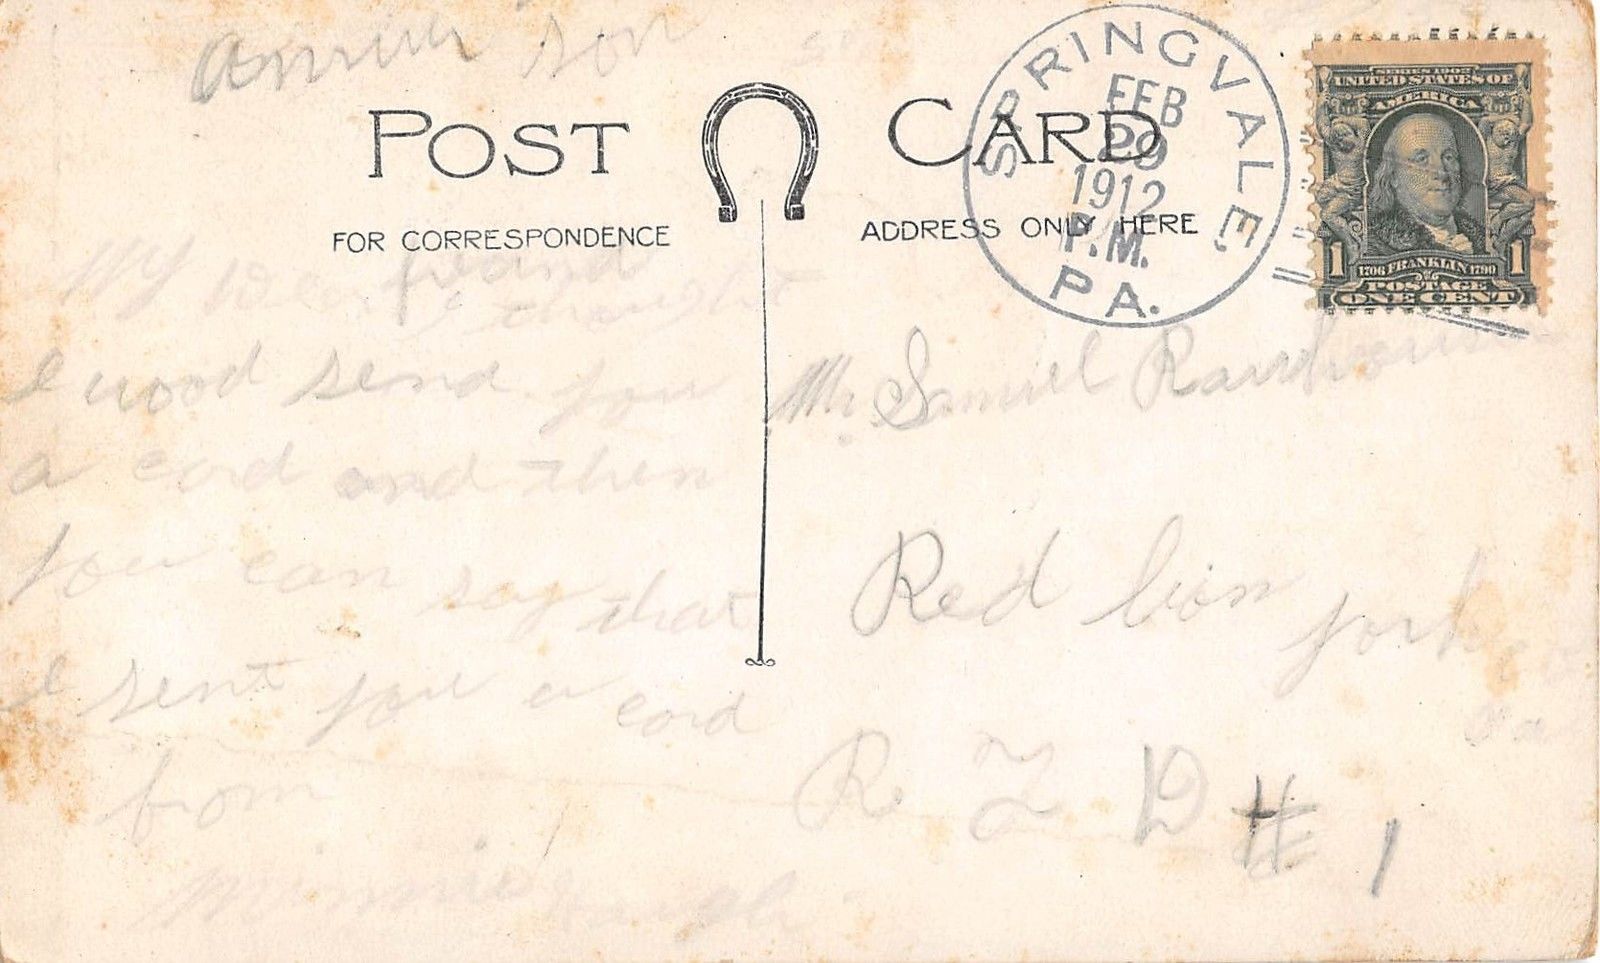 Answer son
POST CARD
FOR CORRESPONDENCE
ADDRESS ONLY HERE
SPRINGVALE, PA.
FEB
29
1912
P.M.
SERIES 1902
UNITED STATES OF
AMERICA
1706 FRANKLIN 1790
POSTAGE
1 1
ONE CENT
My Dear friend
I thought
I wood send you
a card and then
you can say that
I sent you a card
from
Minnie
Mr. Samuel
Red lion york
R F D # 1